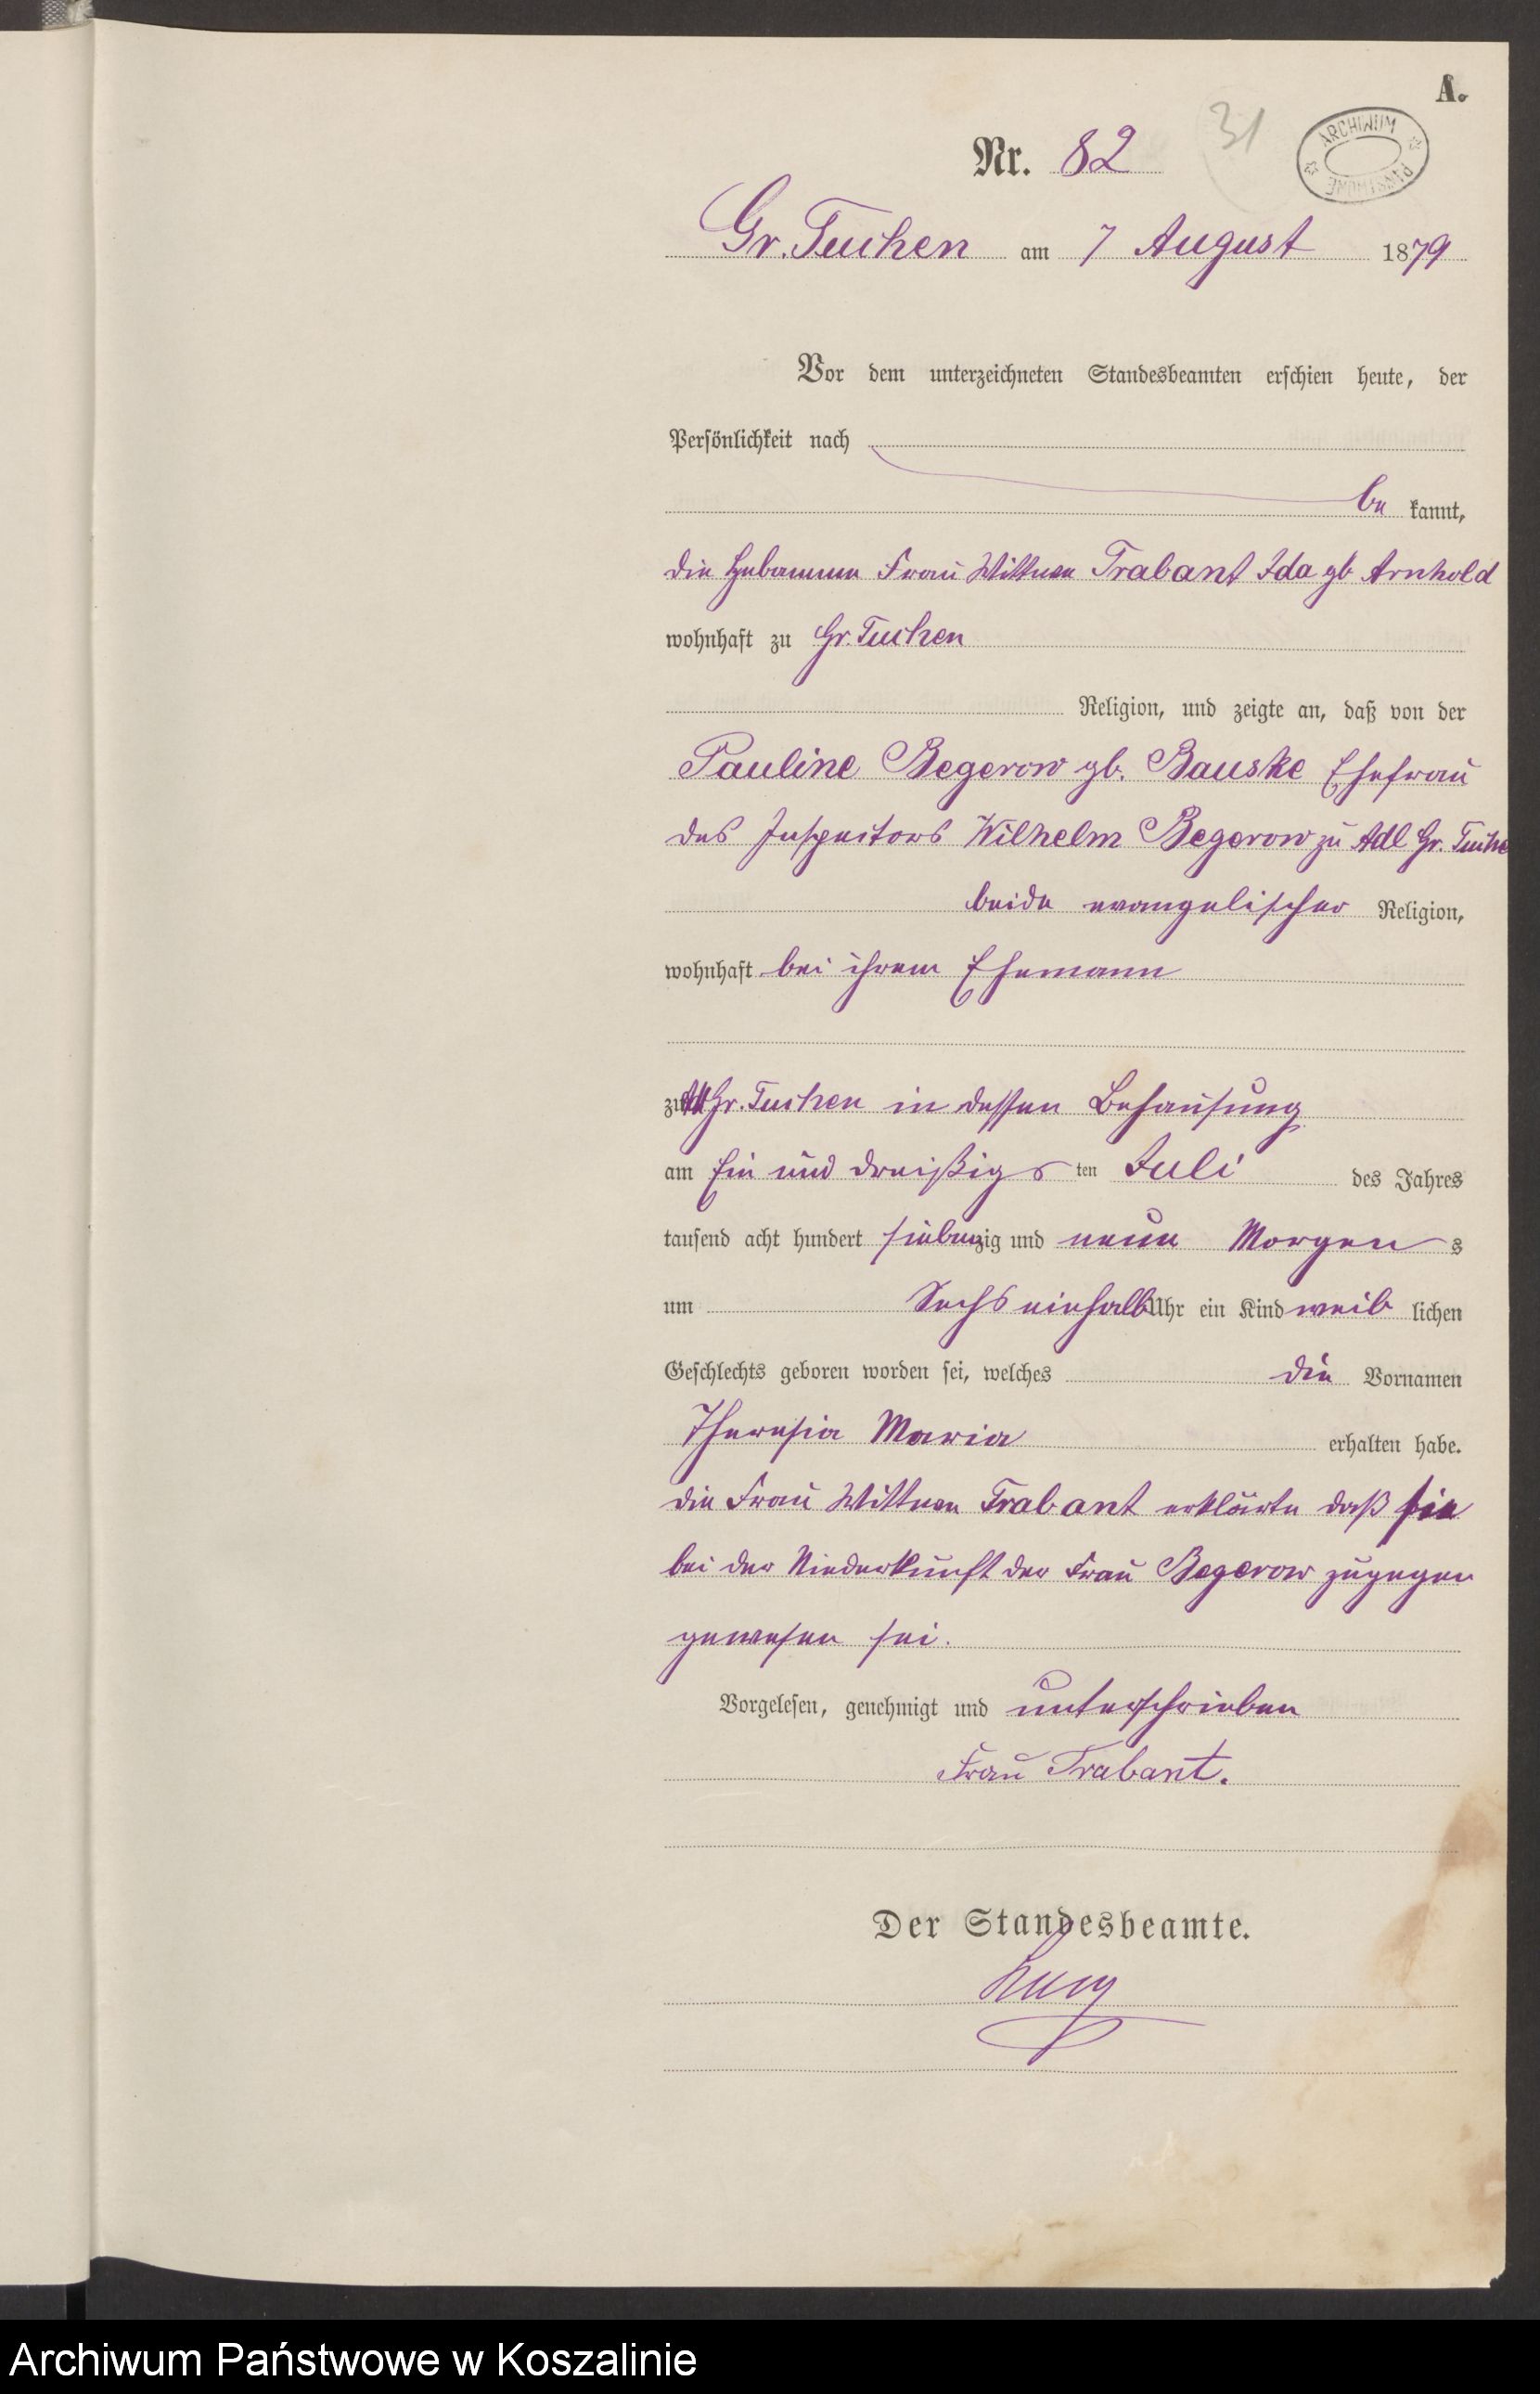 A.
Nr. 82
31
ARCHIWUM PAŃSTWOWE
Gr. Tuchen am 7 August 1879
Vor dem unterzeichneten Standesbeamten erschien heute, der
Persönlichkeit nach
be kannt,
die Hebamme Frau Wittwe Trabant Ida gb Arnhold
wohnhaft zu Gr. Tuchen
Religion, und zeigte an, daß von der
Pauline Begerow gb. Bauske Ehefrau
des Inspectors Wilhelm Begerow zu Adl Gr. Tuche
beide evangelischer Religion,
wohnhaft bei ihrem Ehemann
zu Adl Gr. Tuchen in dessen Behausung
am Ein und dreißigs ten Juli des Jahres
tausend acht hundert siebenzig und neun Morgens
um Sechs einhalb Uhr ein Kind weib lichen
Geschlechts geboren worden sei, welches die Vornamen
Theresia Maria erhalten habe.
die Frau Wittwe Trabant erklärte daß sie
bei der Niederkunft der Frau Begerow zugegen
gewesen sei.
Vorgelesen, genehmigt und unterschrieben
Frau Trabant.
Der Standesbeamte.
Archiwum Państwowe w Koszalinie